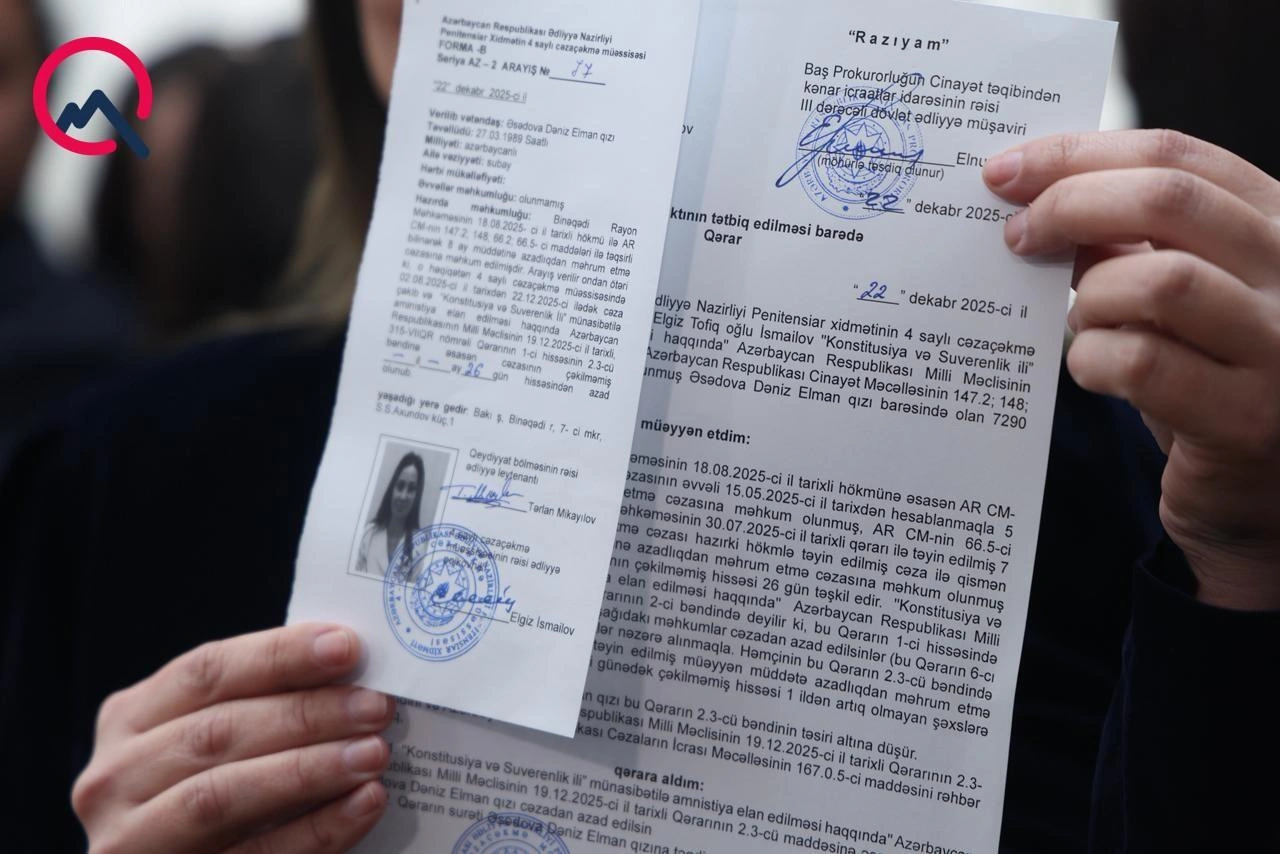 Azərbaycan Respublikası Ədliyyə Nazirliyi
Penitensiar Xidmətin 4 saylı cəzaçəkmə müəssisəsi
FORMA -B
Seriya AZ – 2 ARAYIŞ № 77
"22" dekabr 2025-ci il
Verilib vətəndaş: Əsədova Dəniz Elman qızı
Təvəllüdü: 27.03.1989 Saatlı
Milliyəti: azərbaycanlı
Ailə vəziyyəti: subay
Hərbi mükəlləfiyəti:
Əvvəllər məhkumluğu: olunmamış
Hazırda məhkumluğu: Binəqədi Rayon
Məhkəməsinin 18.08.2025- ci il tarixli hökmü ilə AR
CM-nin 147.2; 148; 66.2; 66.5- ci maddələri ilə təqsirli
bilinərək 8 ay müddətinə azadlıqdan məhrum etmə
cəzasına məhkum edilmişdir. Arayış verilir ondan ötəri
ki, o həqiqətən 4 saylı cəzaçəkmə müəssisəsində
02.08.2025-ci il tarixdən 22.12.2025-ci ilədək cəza
çəkib və "Konstitusiya və Suverenlik İli" münasibətilə
amnistiya elan edilməsi haqqında Azərbaycan
Respublikasının Milli Məclisinin 19.12.2025-ci il tarixli,
315-VIIQR nömrəli Qərarının 1-ci hissəsinin 2.3-cü
bəndinə əsasən cəzasının çəkilməmiş
– il – ay 26 gün hissəsindən azad
olunub.
yaşadığı yerə gedir: Bakı ş. Binəqədi r, 7- ci mkr,
S.S.Axundov küç.1
Qeydiyyat bölməsinin rəisi
ədliyyə leytenantı
Tərlan Mikayılov
4 saylı cəzaçəkmə
müəssisəsinin rəisi ədliyyə
Elgiz İsmailov
"Razıyam"
Baş Prokurorluğun Cinayət təqibindən
kənar icraatlar idarəsinin rəisi
III dərəcəli dövlət ədliyyə müşaviri
Elnu
(möhürlə təsdiq olunur)
"22" dekabr 2025-ci
ktının tətbiq edilməsi barədə
Qərar
"22" dekabr 2025-ci il
dliyyə Nazirliyi Penitensiar xidmətinin 4 saylı cəzaçəkmə
Elgiz Tofiq oğlu İsmailov "Konstitusiya və Suverenlik ili"
i haqqında" Azərbaycan Respublikası Milli Məclisinin
Azərbaycan Respublikası Cinayət Məcəlləsinin 147.2; 148;
unmuş Əsədova Dəniz Elman qızı barəsində olan 7290
müəyyən etdim:
əməsinin 18.08.2025-ci il tarixli hökmünə əsasən AR CM-
əzasının əvvəli 15.05.2025-ci il tarixdən hesablanmaqla 5
etmə cəzasına məhkum olunmuş, AR CM-nin 66.5-ci
əhkəməsinin 30.07.2025-ci il tarixli qərarı ilə təyin edilmiş 7
mə cəzası hazırki hökmlə təyin edilmiş cəza ilə qismən
nə azadlıqdan məhrum etmə cəzasına məhkum olunmuş
nın çəkilməmiş hissəsi 26 gün təşkil edir. "Konstitusiya və
a elan edilməsi haqqında" Azərbaycan Respublikası Milli
ərarının 2-ci bəndində deyilir ki, bu Qərarın 1-ci hissəsində
şağıdakı məhkumlar cəzadan azad edilsinlər (bu Qərarın 6-cı
lər nəzərə alınmaqla. Həmçinin bu Qərarın 2.3-cü bəndində
təyin edilmiş müəyyən müddətə azadlıqdan məhrum etmə
i günədək çəkilməmiş hissəsi 1 ildən artıq olmayan şəxslərə
n qızı bu Qərarın 2.3-cü bəndinin təsiri altına düşür.
spublikası Milli Məclisinin 19.12.2025-ci il tarixli Qərarının 2.3-
kası Cəzaların İcrası Məcəlləsinin 167.0.5-ci maddəsini rəhbər
qərara aldım:
1. "Konstitusiya və Suverenlik ili" münasibətilə amnistiya elan edilməsi haqqında" Azərbayc
ublikası Milli Məclisinin 19.12.2025-ci il tarixli Qərarının 2.3-cü maddəsinə
dova Dəniz Elman qızı cəzadan azad edilsin
Qərarın surəti Əsədova Dəniz Elman qızına